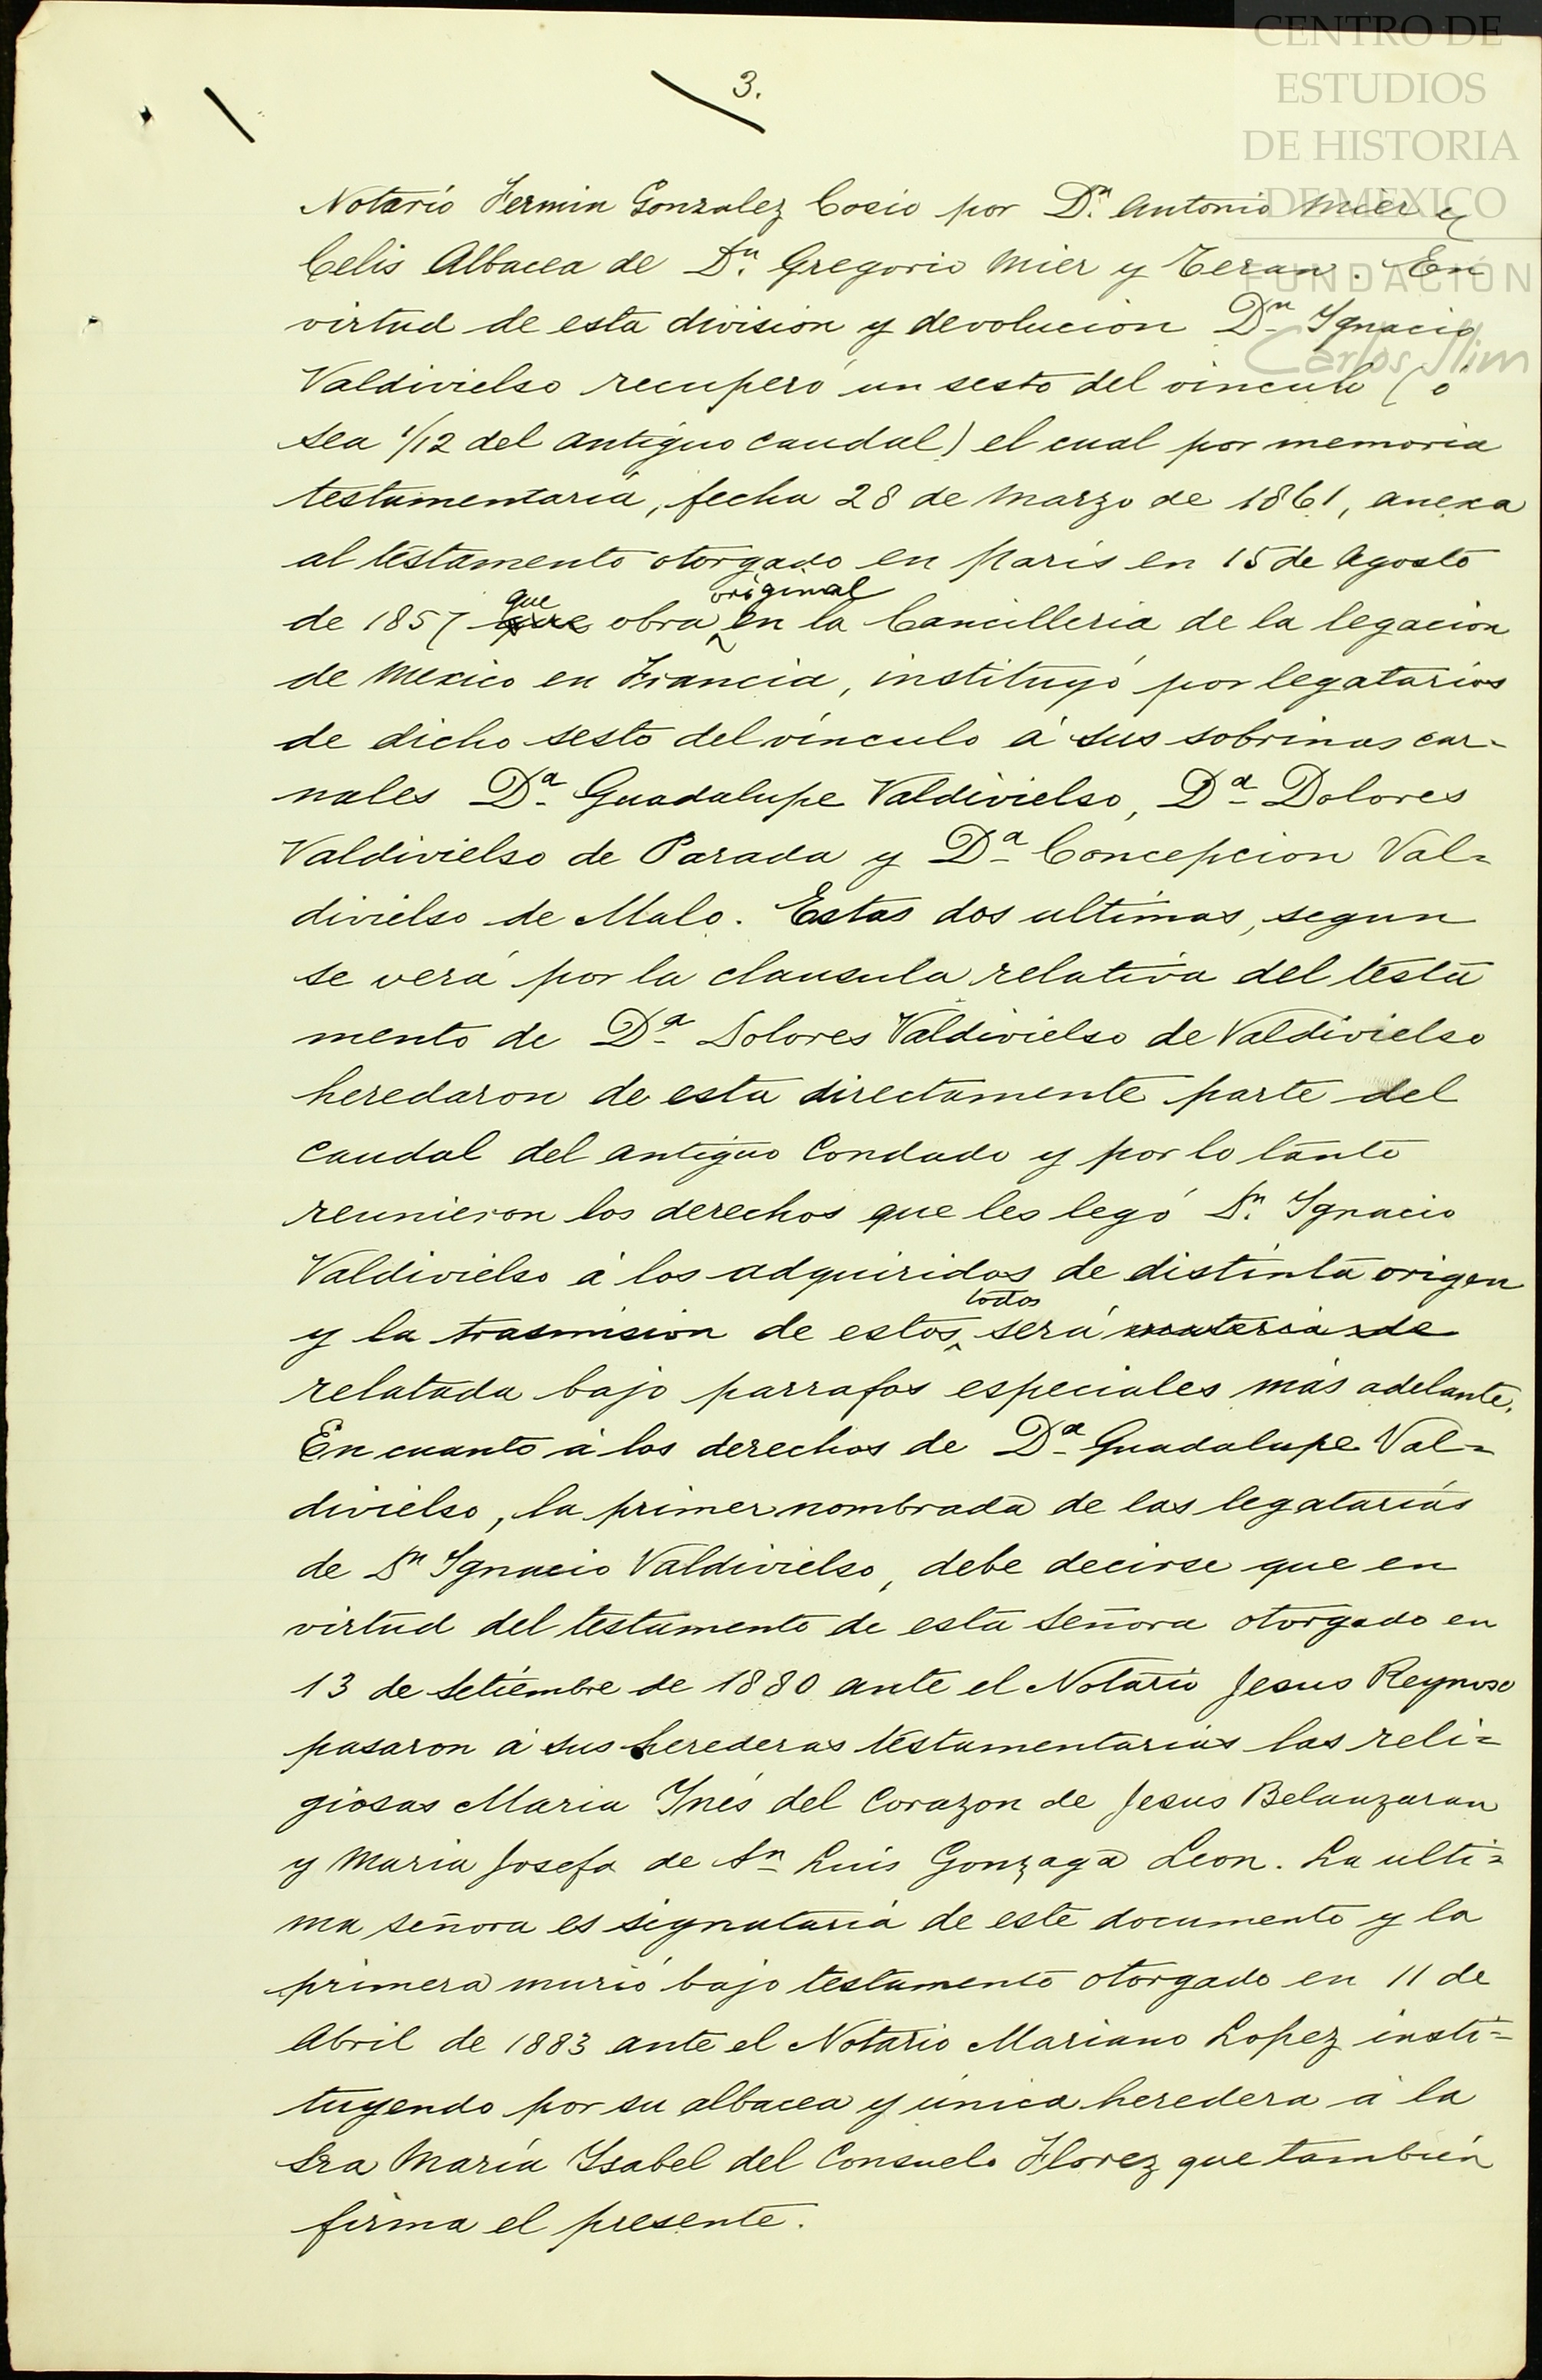 CENTRO DE
ESTUDIOS
DE HISTORIA
DE MÉXICO
FUNDACIÓN
Carlos Slim
3.
Notario Fermin Gonzalez Cosio por Dn. Antonio Mier y
Celis Albacea de Dn. Gregorio Mier y Teran. En
virtud de esta division y devolucion Dn Ignacio
Valdivielso recuperó un sesto del vinculo (ó
sea 1/12 del antiguo caudal) el cual por memoria
testamentaria, fecha 28 de Marzo de 1861, anexa
al testamento otorgado en Paris en 15 de Agosto
de 1857 que que obra original en la Cancilleria de la legacion
de Mexico en Francia, instituyó por legatarios
de dicho sesto del vínculo á sus sobrinas car-
nales Da Guadalupe Valdivielso, Da Dolores
Valdivielso de Parada y Da Concepcion Val=
divielso de Malo. Estas dos ultimas, segun
se verá por la clausula relativa del testa
mento de Da Dolores Valdivielso de Valdivielso
heredaron de esta directamente parte del
caudal del antiguo Condado y por lo tanto
reunieron los derechos que les legó Dn. Ignacio
Valdivielso á los adquiridos de distinta origen
y la trasmision de estos todos será materia de
relatada bajo parrafos especiales más adelante.
En cuanto á los derechos de Da Guadalupe Val=
divielso, la primer nombrada de las legatarias
de Dn Ignacio Valdivielso, debe decirse que en
virtud del testamento de esta Señora otorgado en
13 de Setiembre de 1880 ante el Notario Jesus Reynoso
pasaron á sus herederas testamentarias las reli=
giosas Maria Inés del Corazon de Jesus Belaunzaran
y Maria Josefa de Sn Luis Gonzaga Leon. La ulti=
ma señora es signataria de este documento y la
primera murió bajo testamento otorgado en 11 de
Abril de 1883 ante el Notario Mariano Lopez insti=
tuyendo por su albacea y única heredera á la
Sra María Ysabel del Consuelo Florez que también
firma el presente.